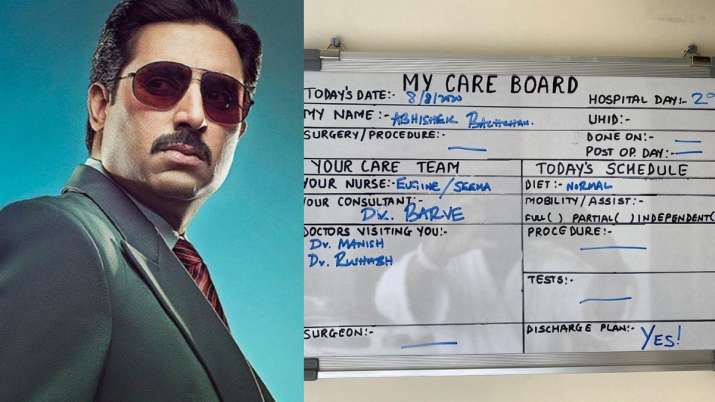 MY CARE BOARD
TODAY'S DATE:- 8/8/2020
HOSPITAL DAY:-
MY NAME:- ABHISHEK BACHCHAN.
UHID:-
SURGERY/PROCEDURE:-
DONE ON:-
POST OP. DAY:-
YOUR CARE TEAM
YOUR NURSE:- EUGINE/SEEMA
YOUR CONSULTANT:-
Dr. BARVE
DOCTORS VISITING YOU:-
Dr. MANISH
Dr.
SURGEON:-
TODAY'S SCHEDULE
DIET:- NORMAL
MOBILITY/ASSIST:-
FULL( ) PARTIAL( ) INDEPENDENT(
PROCEDURE:-
TESTS:-
DISCHARGE PLAN:- YES!